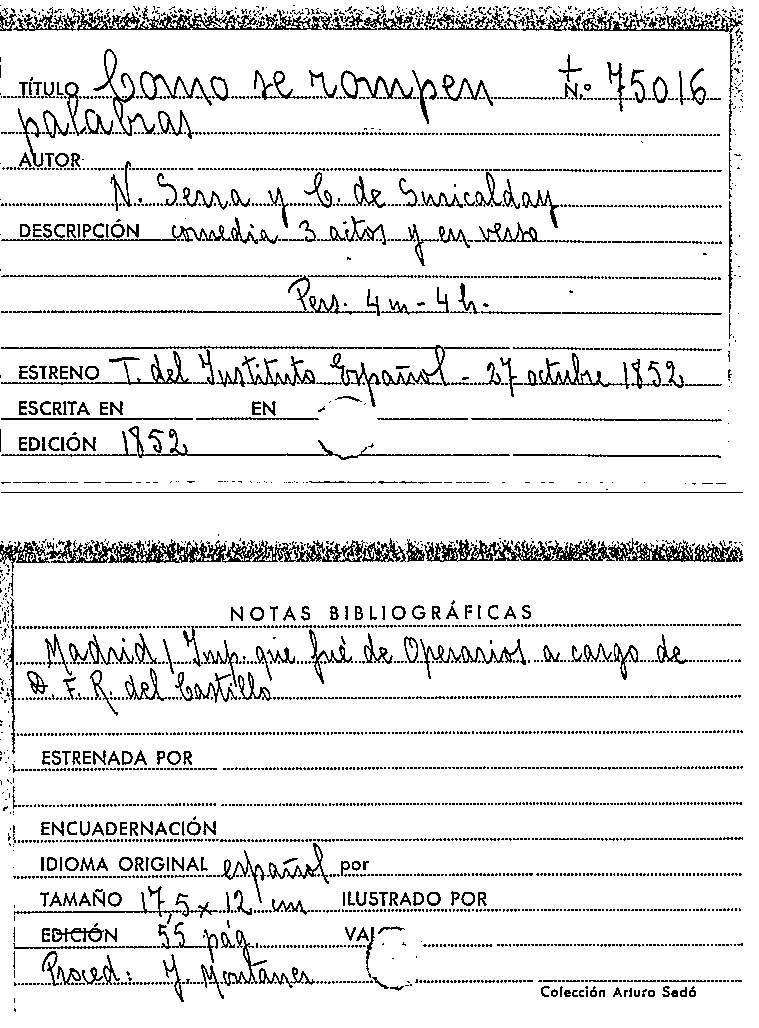 TÍTULO Como se rompen t N.º 75016
palabras
AUTOR
N. Serra y C. de Suricalday
DESCRIPCIÓN comedia 3 actos y en verso
Pers. 4 m - 4 h.
ESTRENO T. del Instituto Español - 27 octubre 1852
ESCRITA EN EN
EDICIÓN 1852
NOTAS BIBLIOGRÁFICAS
Madrid / Imp. que fué de Operarios a cargo de
D. F. R. del Castillo
ESTRENADA POR
ENCUADERNACIÓN
IDIOMA ORIGINAL español por
TAMAÑO 17,5 x 12 cm ILUSTRADO POR
EDICIÓN 55 pág. VAL
Proced: J. Montanes
Colección Arturo Sedó